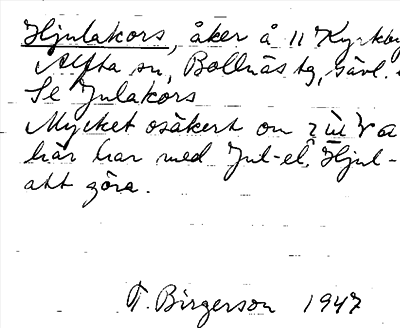 Hjulakors, åker å 11 Kyrkby
Alfta sn, Bollnäs tg, Gävl.
Se Julakors
Mycket osäkert om
här har med Jul- el. Hjul-
att göra.
T. Birgerson 1947